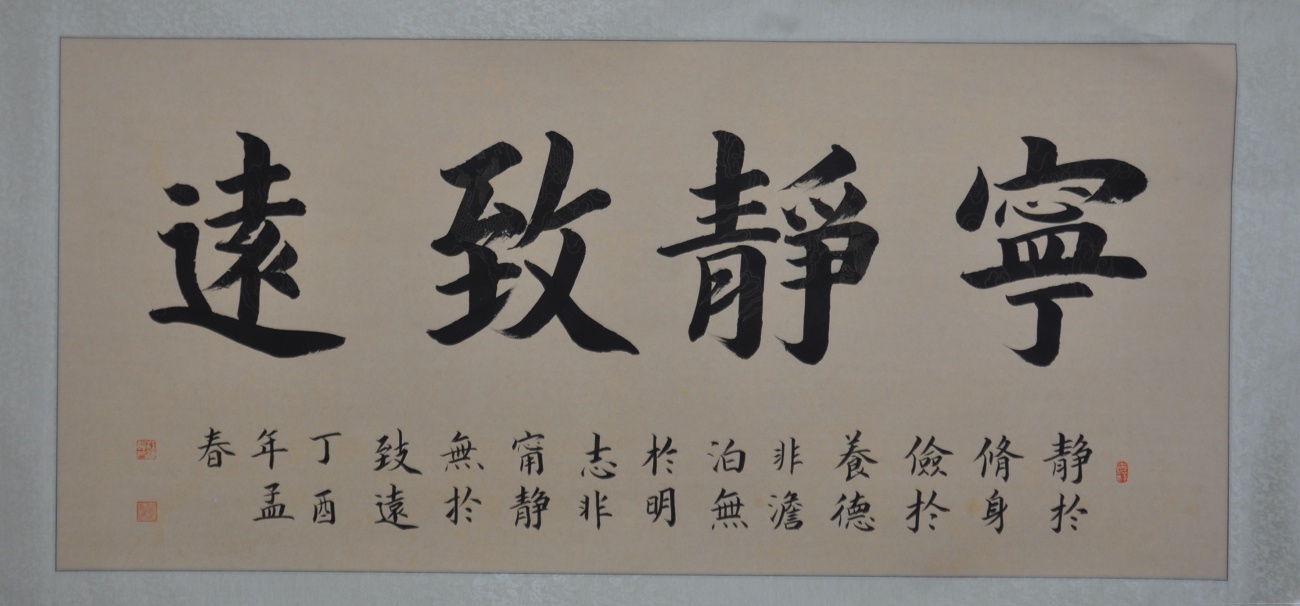 寧靜致遠
静於
脩身
儉於
養德
非澹
泊無
於明
志非
甯静
無於
致遠
丁酉
年孟
春